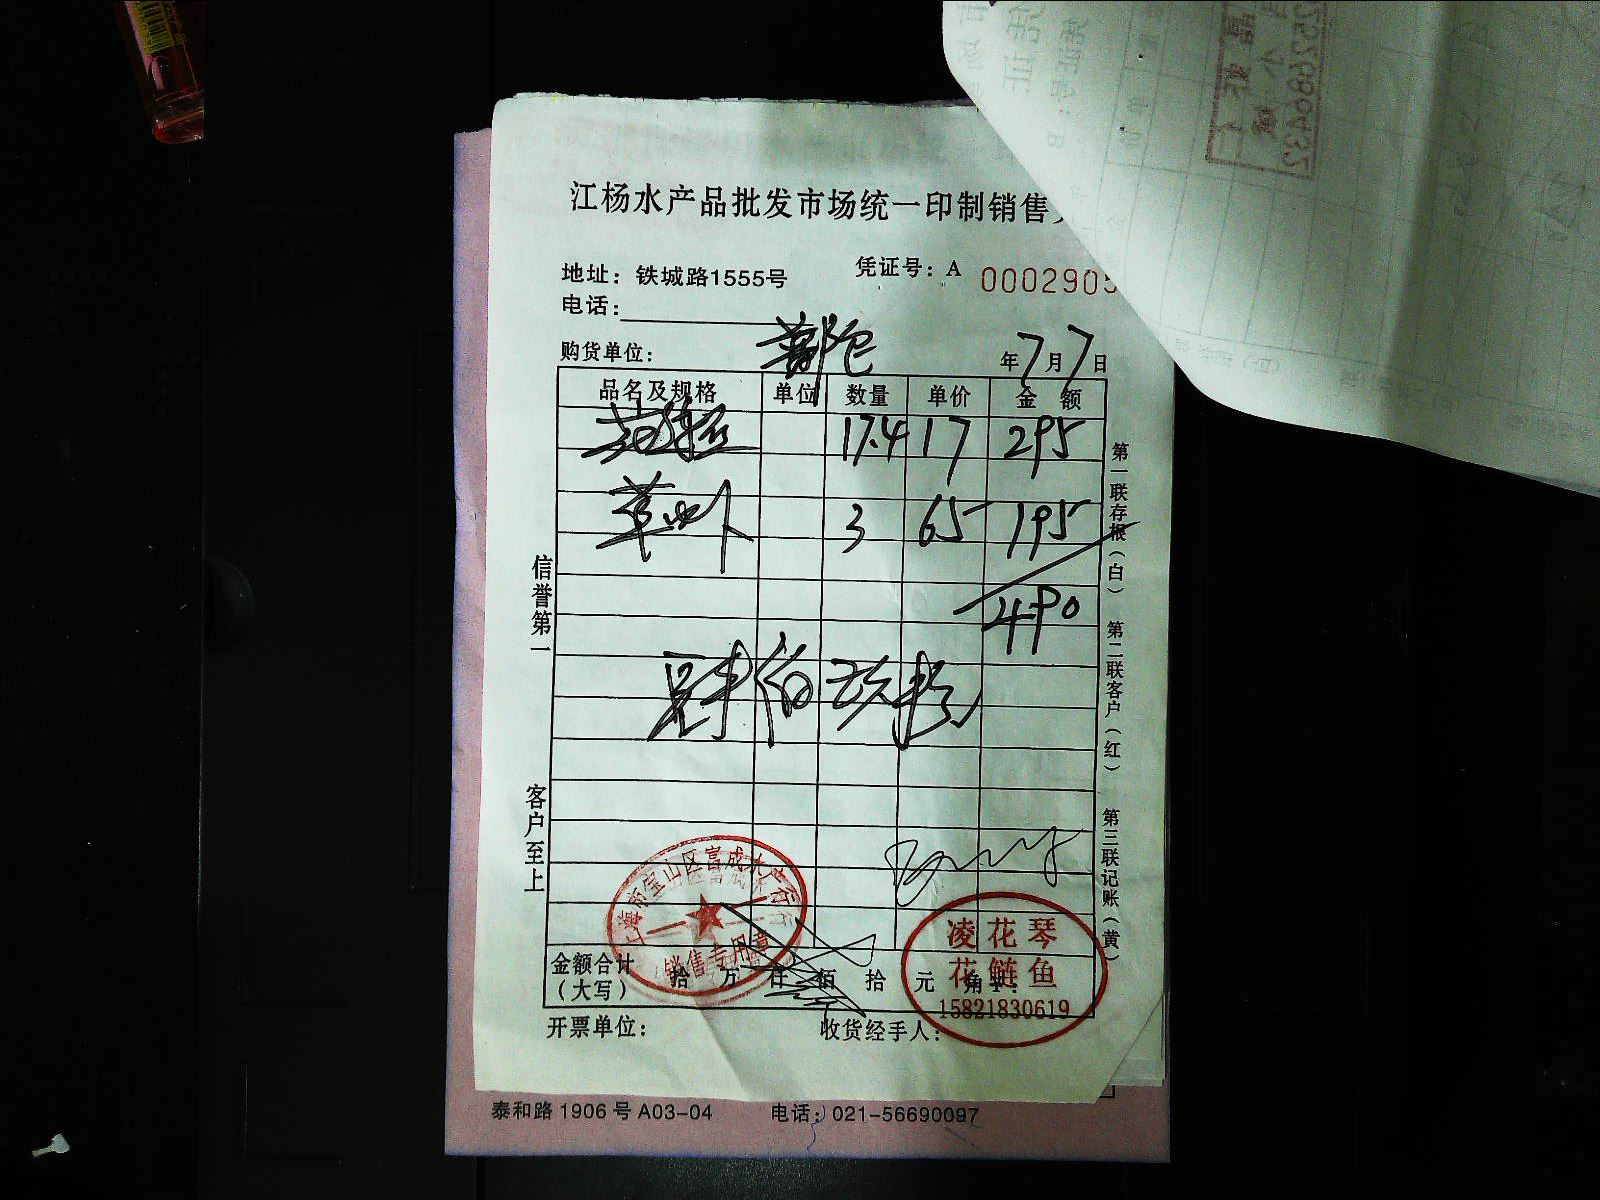 江杨水产品批发市场统一印制销售
地址：铁城路1555号
凭证号：A 0002905
电话：
购货单位：
年7月7日
品名及规格 单位 数量 单价 金额
17.4 17 295
3 65 195
490
肆佰玖拾
信誉第一
客户至上
第一联存根（白） 第二联客户（红） 第三联记账（黄）
上海市宝山区富成水产行
销售专用章
凌花琴
花鲢鱼
15821830619
金额合计（大写） 拾 万 仟 佰 拾 元 角
开票单位：
收货经手人：
泰和路1906号A03-04 电话：021-56690097